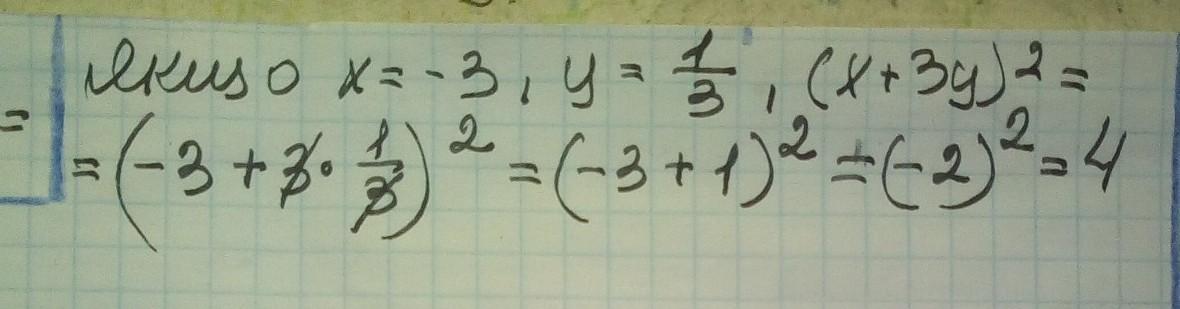 Якщо x = -3, y = 1/3, (x+3y)² =
= (-3 + 3 · 1/3)² = (-3 + 1)² = (-2)² = 4
=